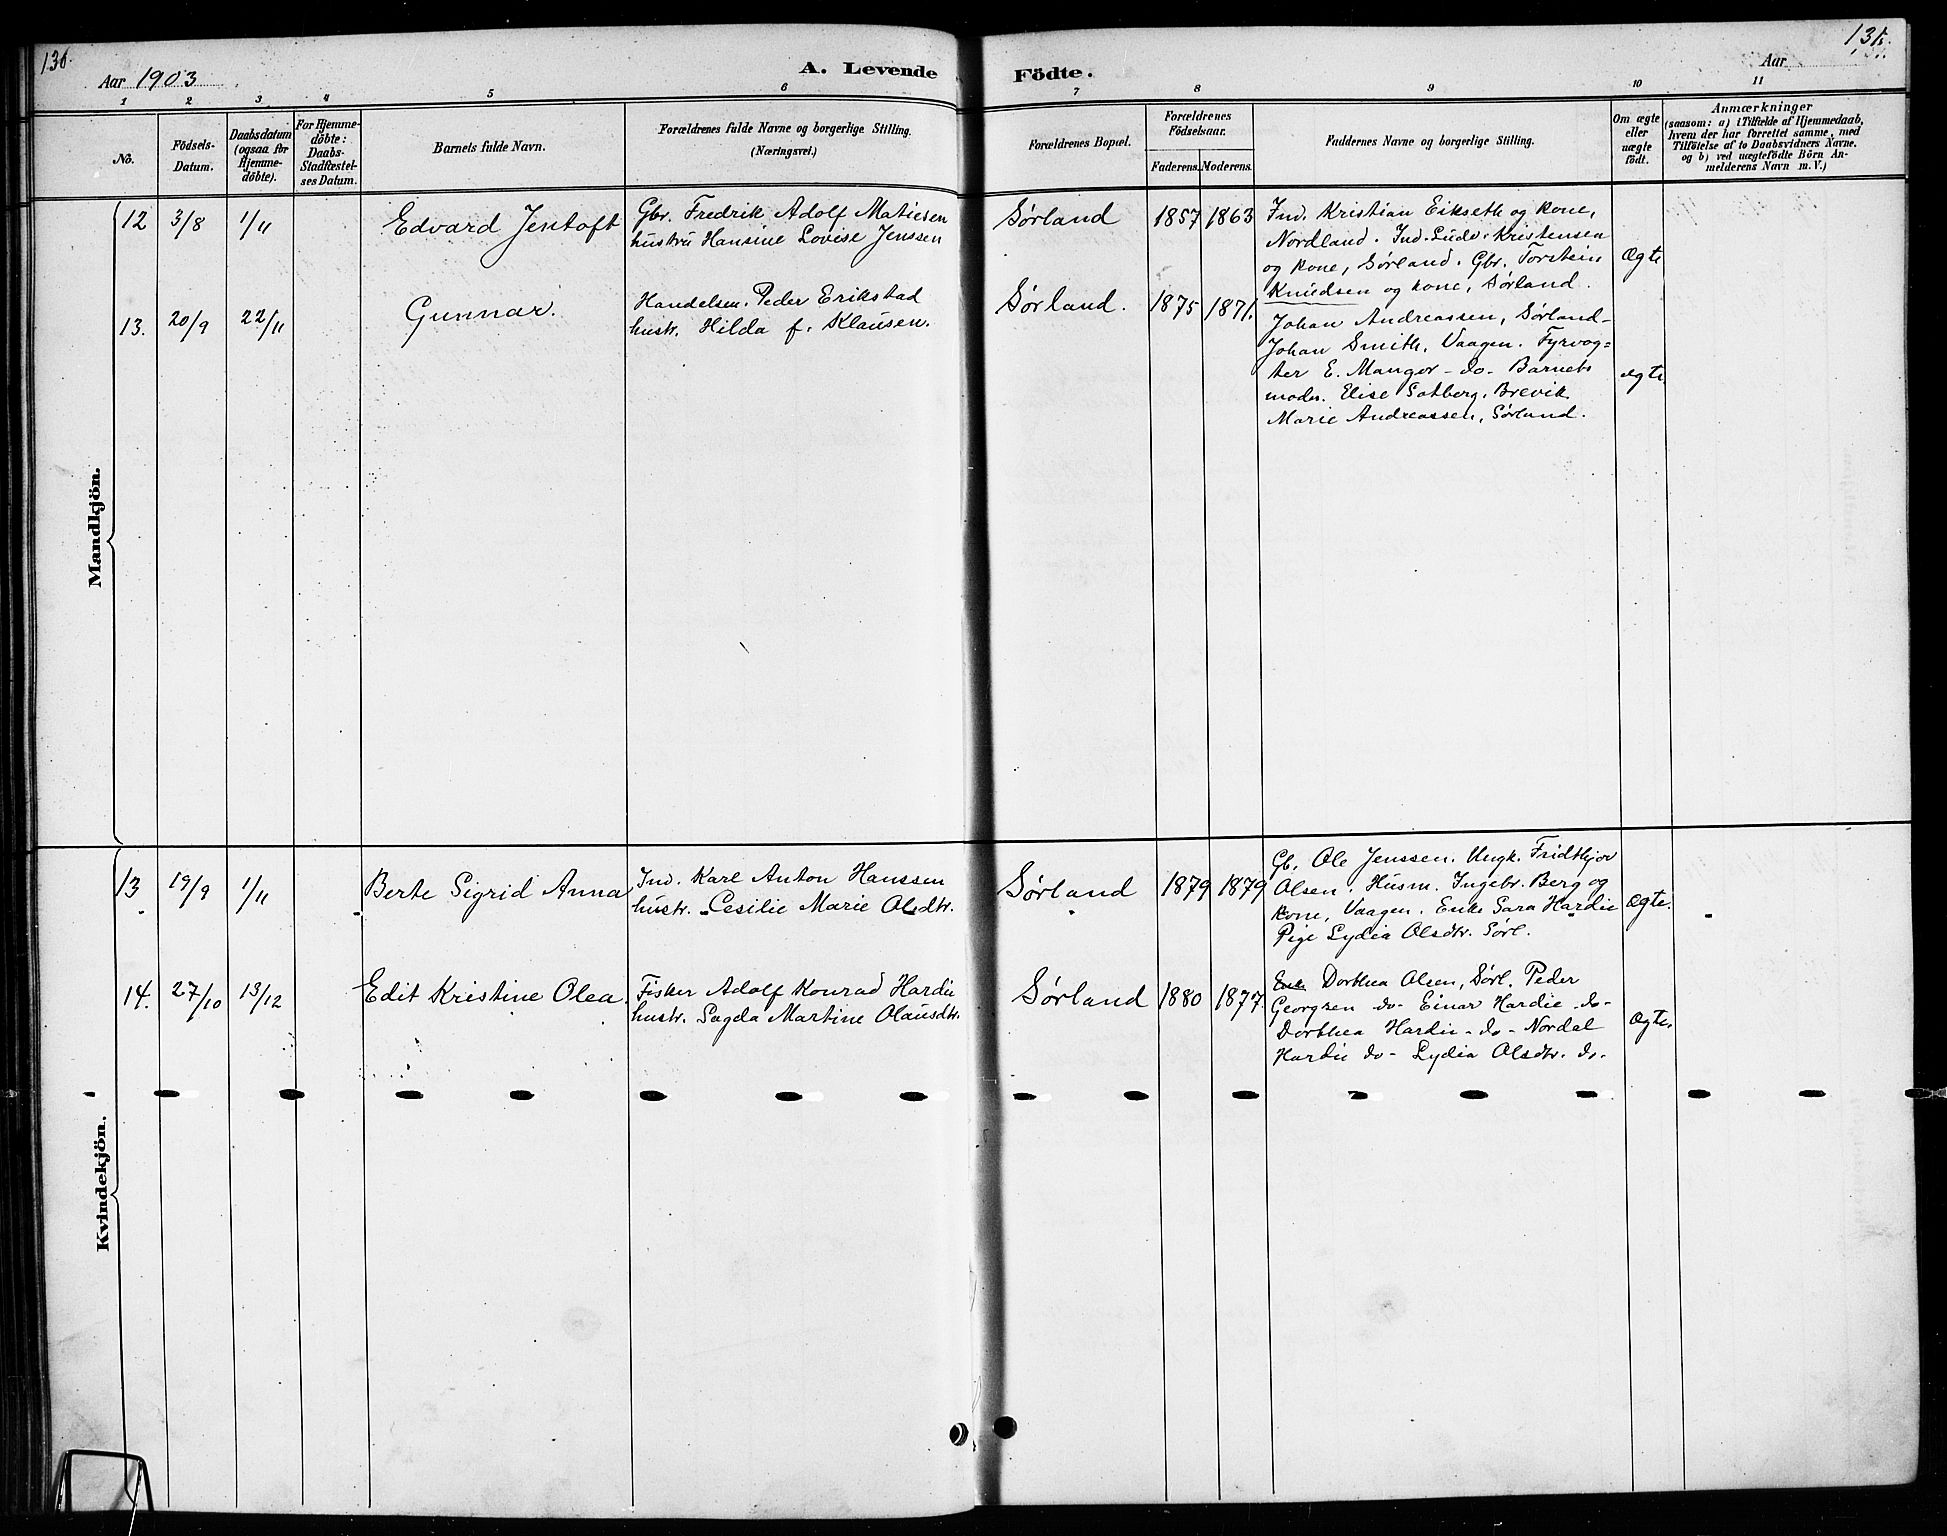 130.
131.
Aar 1903
A. Levende Födte.
Aar
1 2 3 4 5 6 7 8 9 10 11
No.
Födsels-
Datum.
Daabsdatum
(ogsaa for
Hjemme-
döbte).
For Hjemme-
döbte:
Daabs-
Stadfæstel-
ses Datum.
Barnets fulde Navn.
Forældrenes fulde Navne og borgerlige Stilling.
(Næringsvei.)
Forældrenes Bopæl.
Forældrenes
Födselsaar.
Faderens. Moderens.
Faddernes Navne og borgerlige Stilling.
Om ægte
eller
uægte
födt.
Anmærkninger
(saasom: a) i Tilfælde af Hjemmedaab,
hvem der har forrettet samme, med
Tilföielse af to Daabsvidners Navne.
og b) ved uægtefödte Börn An-
melderens Navn m. V.)
Mandkjön.
12 3/8 1/11
Edvard Jentoft
Gbr. Fredrik Adolf Matiesen
hustru Hansine Lovise Jenssen
Sørland 1857 1863
Ind. Kristian Eikseth og kone,
Nordland. Ind. Ludv. Kristensen
og kone, Sørland. Gbr. Torstein
Knudsen og kone, Sørland.
Ægte
13. 20/9 22/11
Gunnar.
Handelsm. Peder Erikstad
hustr. Hilda f. Klausen.
Sørland. 1875 1871.
Johan Andreassen, Sørland-
Johan Smith, Vaagen. Fyrvog=
ter E. Mangor - do - Barnets
moder. Elise Sotberg, Brevik
Marie Andreassen, Sørland.
ægte
Kvindekjön.
13 19/9 1/11
Berte Sigrid Anna
Ind. Karl Anton Hanssen
hustr. Cesilie Marie Olsdtr.
Sørland 1879 1879
Gb. Ole Jenssen. Ungk. Fridthjov
Olsen. Husm. Ingebr. Berg og
kone, Vaagen. Enke Sara Hardie
Pige Lydia Olsdtr. Sørl.
Ægte.
14. 27/10 13/12
Edit Kristine Olea.
Fisker Adolf Konrad Hardie
hustr. Sagda Martine Olausdtr.
Sørland 1880 1877.
Enke Dorthea Olsen, Sørl. Peder
Georgsen do- Einar Hardie -do-
Dorthea Hardie - do - Nordal
Hardie do - Lydia Olsdtr. do.
Ægte.